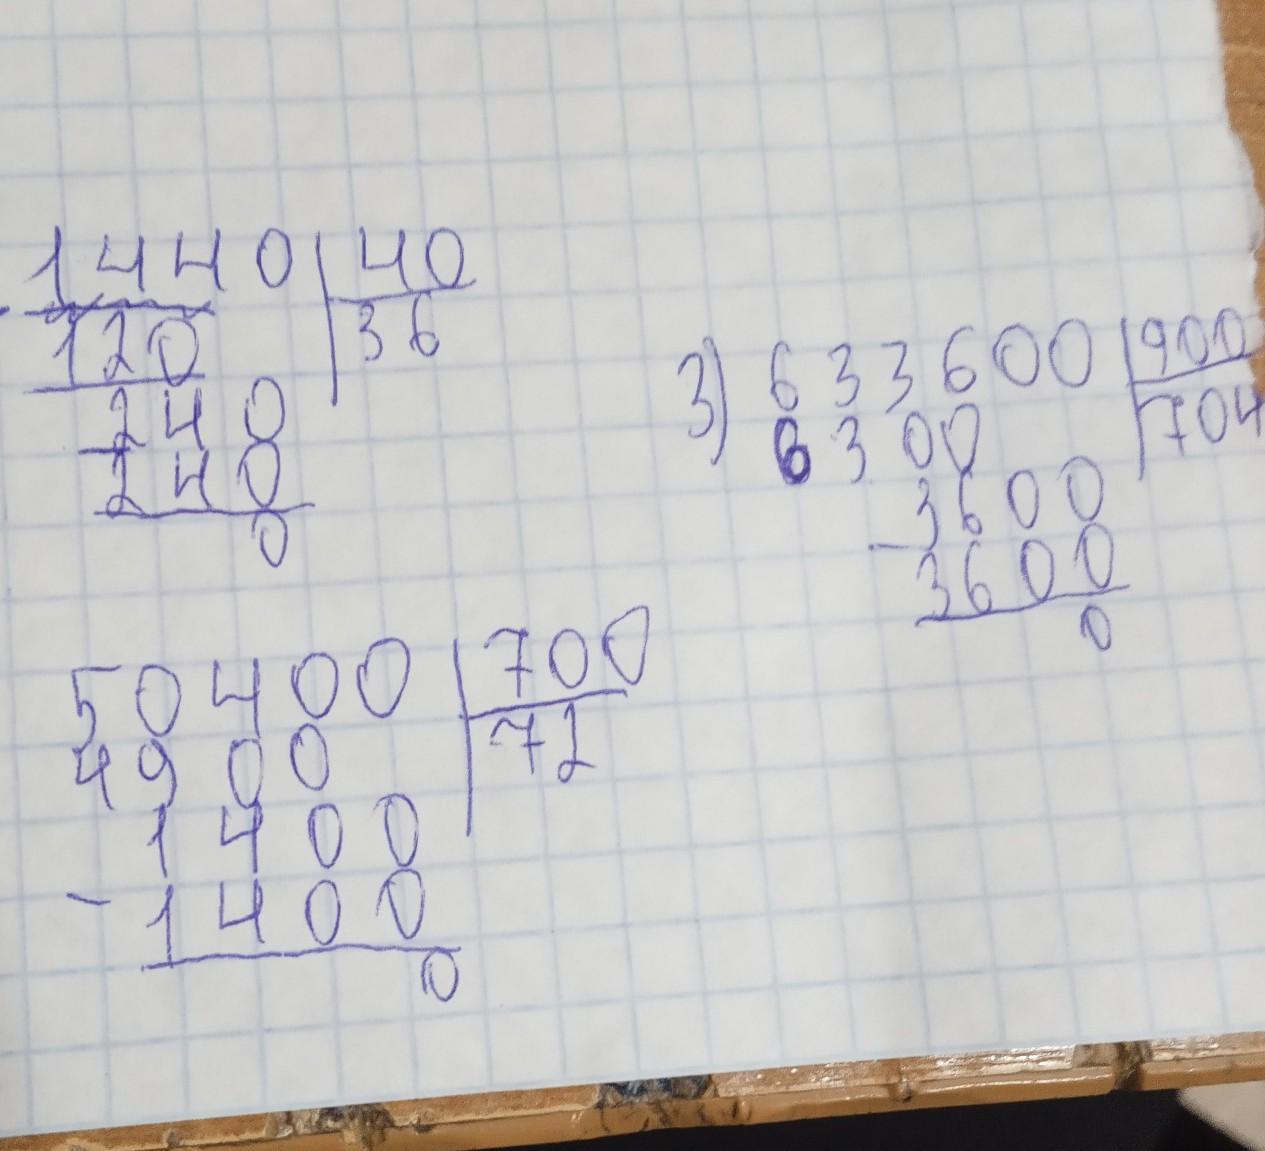 1440 40
120 36
240
240
0
3) 633600 900
6300 704
3600
3600
0
50400 700
4900 72
1400
- 1400
0